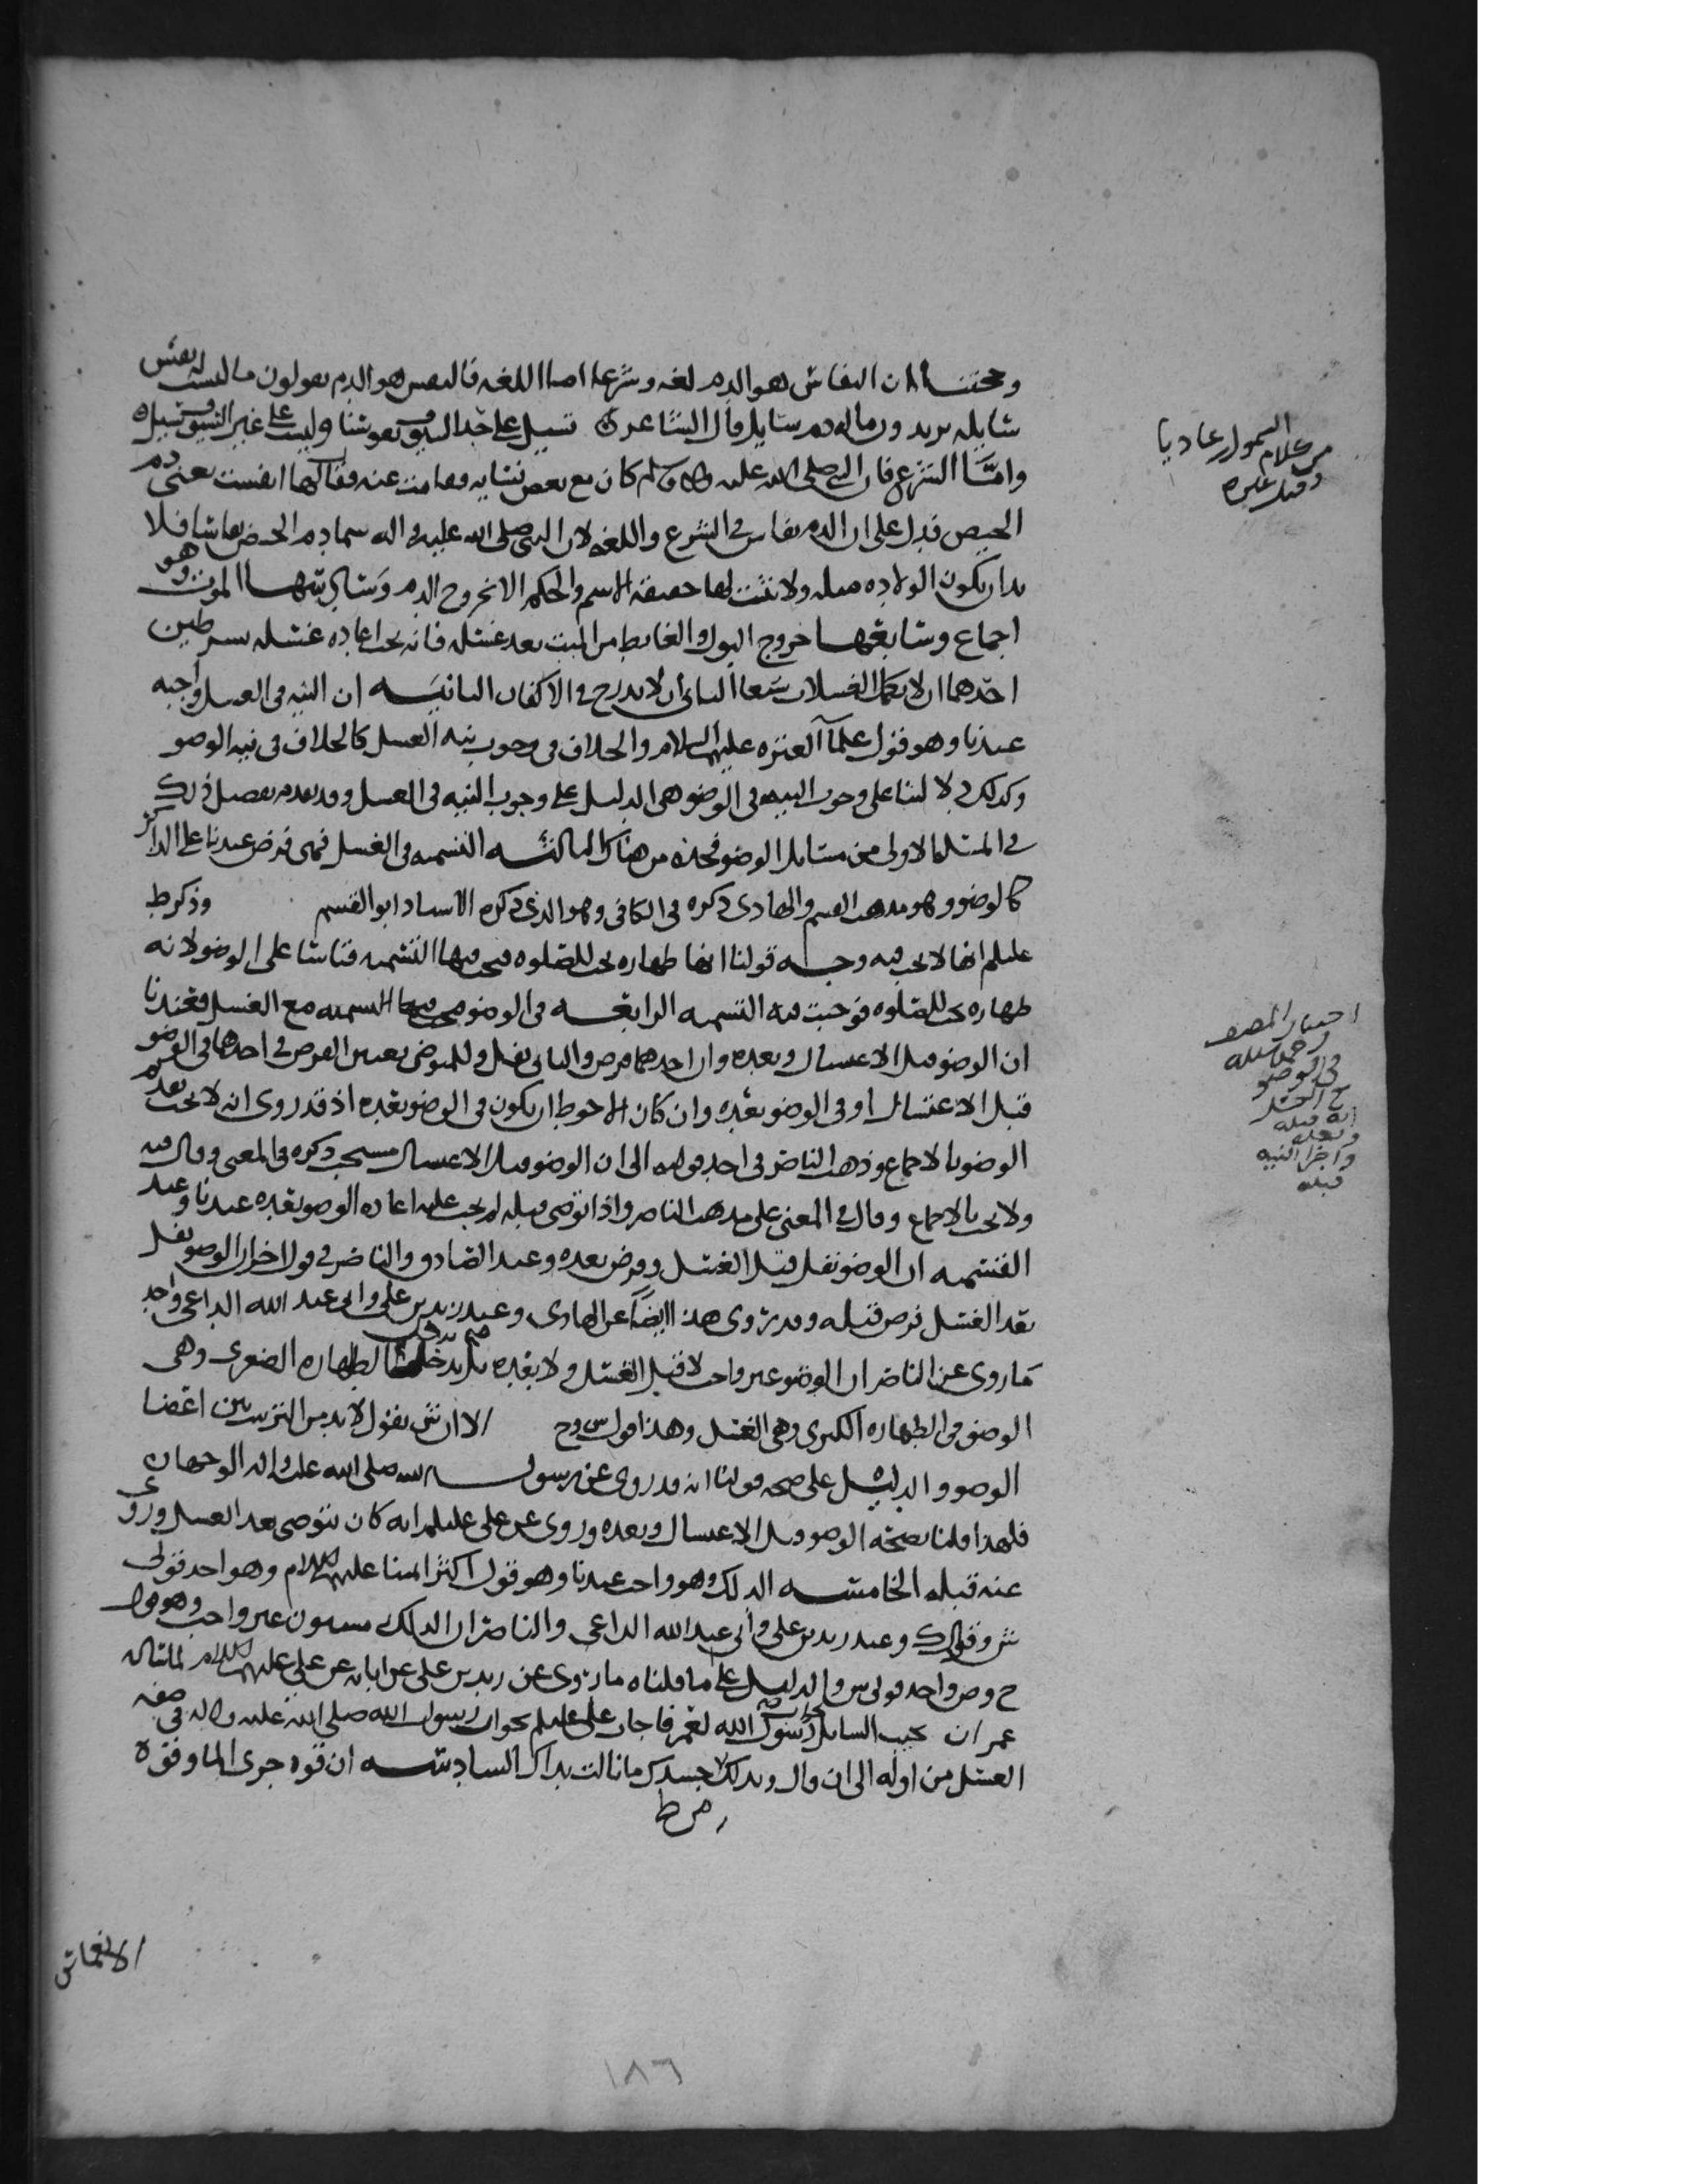 وحجتنا ان النفاس هو الدم لغه وشرعا اما اللغه فالنفس هو الدم يقولون ما ليست له نفس
سايله يريدون ماله دم سايل قال الشاعر تسيل على حد السيوف نفوسنا وليست على غير السيوف تسيل
واما الشرع فان النبي صلى الله عليه واله وسلم كان مع بعض نسايه فقامت عنه فقال لها انفست يعني دم
الحيض فدل على ان الدم نفاس في الشرع واللغه لان النبي صلى الله عليه واله سما دم الحيض نفاسا فلا
بد ان يكون الولاده مثله ولا تثبت لها حقيقه الاسم والحكم الا بخروج الدم وسادستها الموت وهو
اجماع وسابعها خروج البول والغايط من الميت بعد غسله فانه يجب اعاده غسله بشرطين
احدهما ان لا يكمل الغسلات سبعا الثاني ان لا يدرج في الاكفان الثانيه ان النيه في الغسل واجبه
عندنا وهو قول علماء العتره عليهم السلام والخلاف في وجوب نيه الغسل كالخلاف في نيه الوضو
وكذلك دلالتنا على وجوب النيه في الوضو هي الدليل على وجوب النيه في الغسل وقد تقدم تفصيل ذلك
في المسله الاولى من مسايل الوضو فخذه من هناك الثالثه التسميه في الغسل فهي فرض عندنا على الذاكر
كالوضو وهو مذهب القسم والهادي ذكره في الكافي وهو الذي ذكره الاستاد ابو القسم وذكر ط
عليلم انها لا تجب فيه وجه قولنا انها طهاره تجب للصلوه فتجب فيها التسميه قياسا على الوضو لانه
طهاره تجب للصلوه فوجبت فيه التسميه الرابعه في الوضو مع الغسل فعندنا
ان الوضو قبل الاغتسال وبعده وان احدهما فرض والثاني نفل وللمتوضي تعيين الفرض في احدهما في الوضو
قبل الاغتسال او في الوضو بعده وان كان الاحوط ان يكون في الوضو بعده اذ قد روى انه لا يجب تقديم
الوضو بالاجماع وذهب الناصر في احد قوليه الى ان الوضو قبل الاغتسال مستحب ذكره في المغني وقال فيه
ولا يجب بالاجماع وقال في المغني على مذهب الناصر واذا توضى قبله لم يجب عليه اعاده الوضو بعده عندنا وعند
القسميه ان الوضو نفل قبل الغسل وفرض بعده وعند الصادق والناصر في قول اخر ان الوضو نفل
بعد الغسل فرض قبله وقد روى هذا ايضا عن الهادي وعند زيد بن علي وابي عبد الله الداعي واحد
ما روى عن الناصر ان الوضو غير واجب لا قبل الغسل ولا بعده بل يدخل الطهاره الصغرى وهي
الوضو في الطهاره الكبرى وهي الغسل وهذا قول ش وح الا ان ش يقول لا بد من الترتيب بين اعضا
الوضو والدليل على صحه قولنا انه قد روى عن رسول الله صلى الله عليه واله الوجهان
فلهذا قلنا بصحه الوضو قبل الاغتسال وبعده وروى عن علي عليلم انه كان يتوضى بعد الغسل وروى
عنه قبله الخامسه الدلك وهو واجب عندنا وهو قول اكثر ايمتنا عليهم السلام وهو احد قولي
ش وقول ك وعند زيد بن علي وابي عبد الله الداعي والناصر ان الدلك مسنون غير واجب وهو قول
ح وص واحد قولي ش والدليل على ما قلناه ما روى عن زيد بن علي عن ابايه عن علي عليهم السلام لما سال
عمر ان يجيب السايل رسول الله لعمر فاجاب علي عليلم بجواب رسول الله صلى الله عليه واله في صفه
الغسل من اوله الى ان قال وتدلك جسدك ما نالت يداك السادسه ان قوه جرى الما وقوه
الانغماس
من كلام السمول بن عاديا
وقيل غيره
اختيار المصنف
رحمه الله
في الوضو
مع الغسل
انه قبله
وبعده
واجزا النيه
قبله
١٨٦